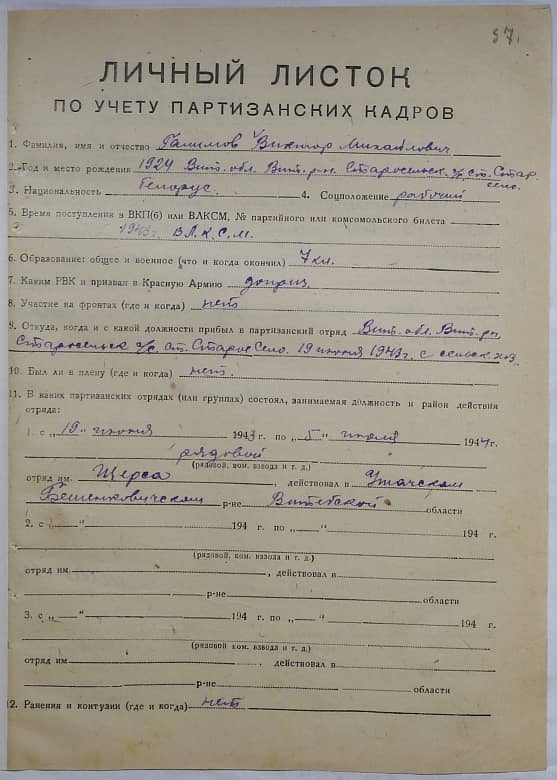 37.
ЛИЧНЫЙ ЛИСТОК
ПО УЧЕТУ ПАРТИЗАНСКИХ КАДРОВ
1. Фамилия, имя и отчество Галимов Виктор Михайлович
2. Год и место рождения 1924 Вит. обл. Вит. р-н. Старосельск. с/с ст. Стар. село.
3. Национальность белорус. 4. Соцположение рабочий
5. Время поступления в ВКП(б) или ВЛКСМ, № партийного или комсомольского билета
1943г. В.Л.К.С.М.
6. Образование: общее и военное (что и когда окончил) 7 кл.
7. Каким РВК и призван в Красную Армию доприз.
8. Участие на фронтах (где и когда) нет
9. Откуда, когда и с какой должности прибыл в партизанский отряд Вит. обл. Вит. рн
Старосельск с/с. ст. Старое Село. 19 июня 1943г. с сельск хоз
10. Был ли в плену (где и когда) нет.
11. В каких партизанских отрядах (или группах) состоял, занимаемая должность и район действия
отряда:
1. с „19" июня 1943 г. по „5" июля 1944 г.
рядовой
(рядовой, ком. взвода и т. д.)
отряд им. Щорса, действовал в Ушачском
Бешенковичском р-не Витебской области
2. с „—" 194 г. по „—" 194 г.
(рядовой, ком. взвода и т. д.)
отряд им. , действовал в
р-не области
3. с „—" 194 г. по „—" 194 г.
(рядовой ком. взвода и т. д.)
отряд им , действовал в
р-не области
12. Ранения и контузии (где и когда) нет